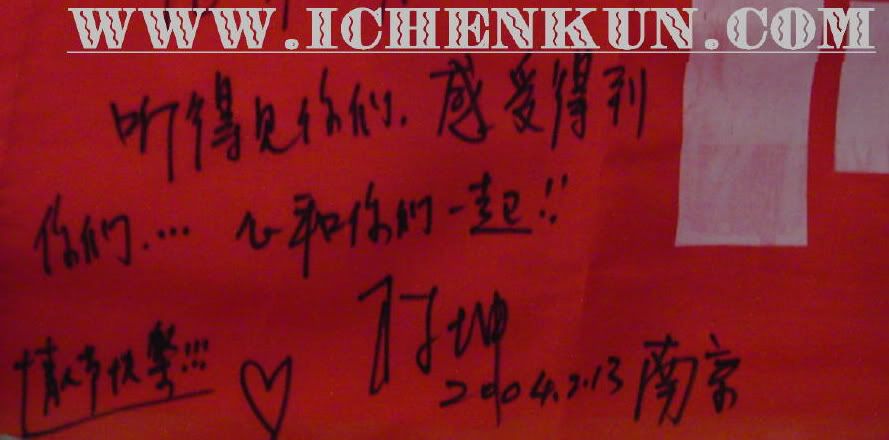 WWW.ICHENKUN.COM
听得见你们,感受得到
你们.... 心和你们一起!!
陈坤
情人节快乐!!!
2004.2.13 南京